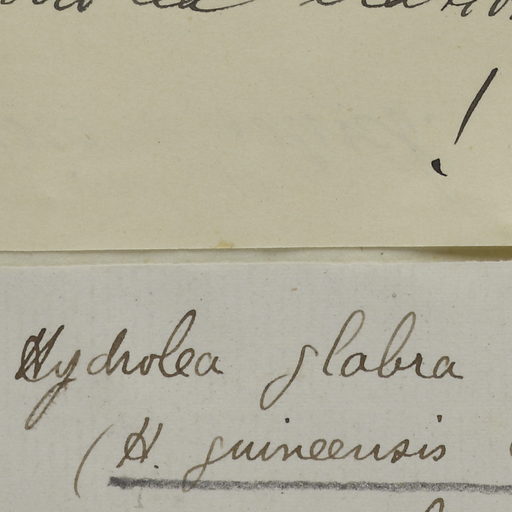 !
Hydrolea glabra
(H. guineensis